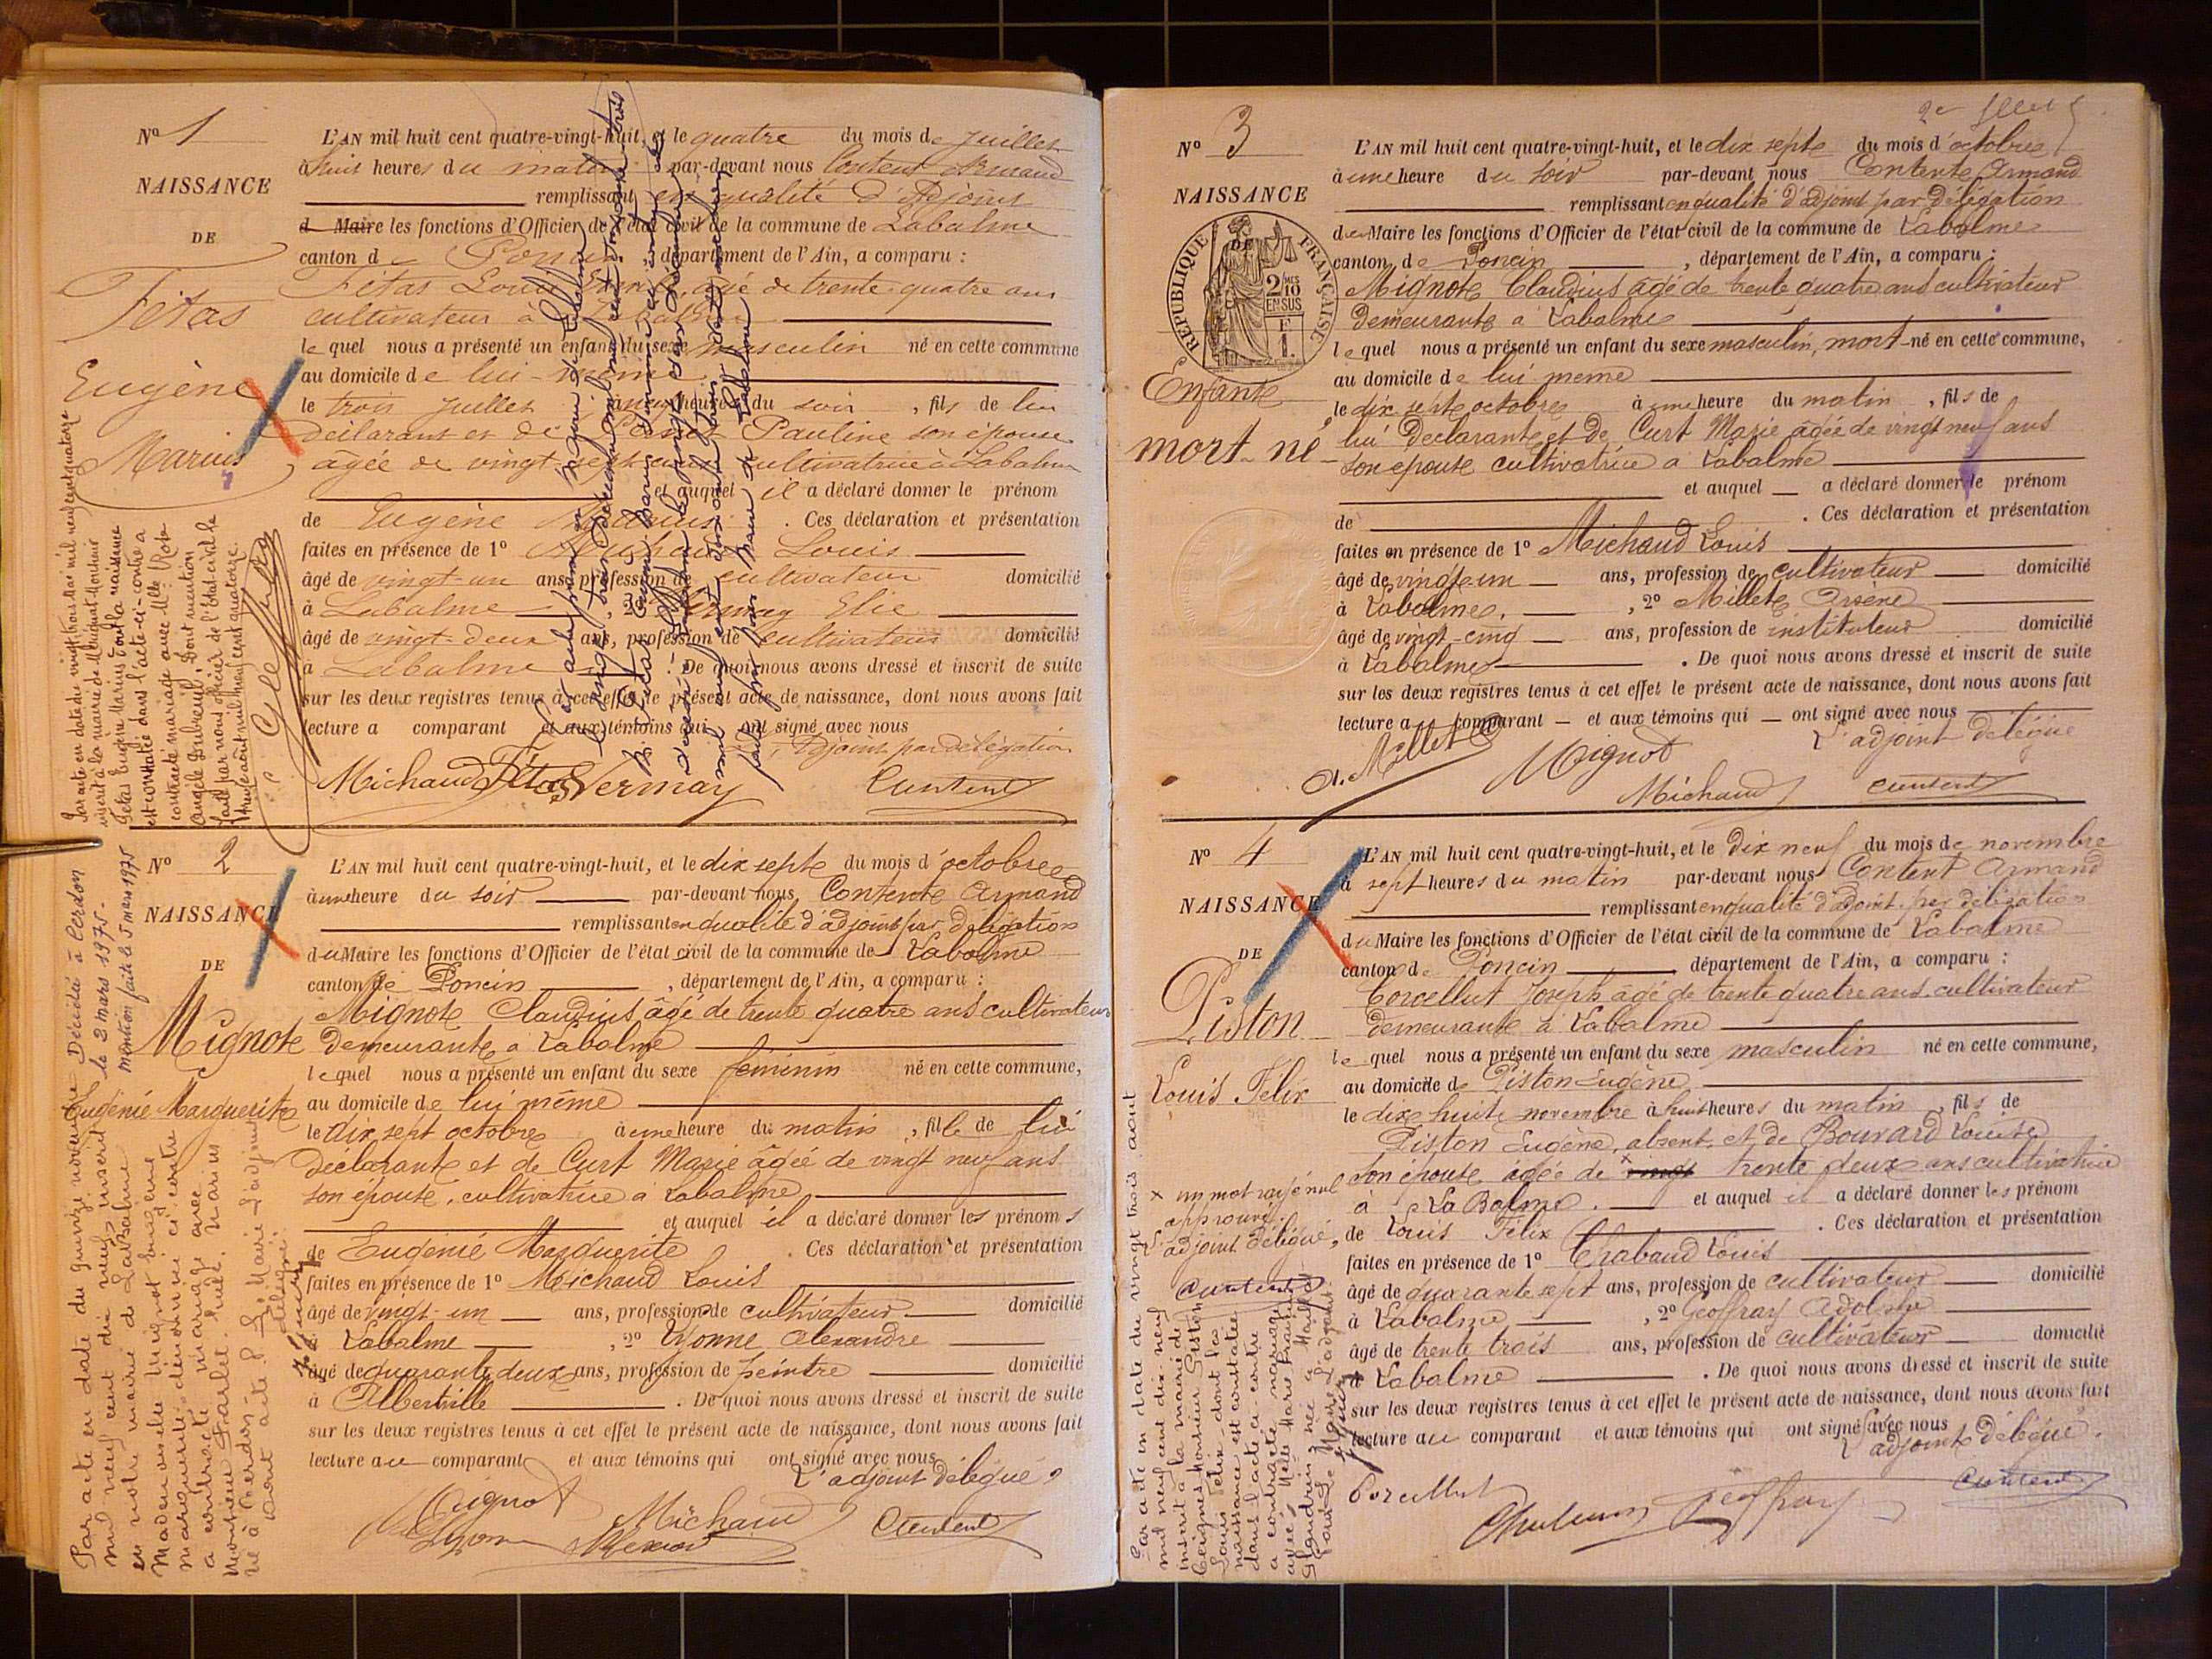 Nº 1
NAISSANCE
DE
Fétas
Eugène
Marius
L'AN mil huit cent quatre-vingt-huit, et le quatre du mois de juillet
à huit heures du matin par-devant nous Content Armand
remplissant en qualité d'Adjoint
d Maire les fonctions d'Officier de l'état civil de la commune de Labalme
canton de Poncin, département de l'Ain, a comparu :
Fétas Louis agé de trente quatre ans
cultivateur à Labalme
lequel nous a présenté un enfant du sexe masculin né en cette commune
au domicile de lui-même
le trois juillet à heures du soir, fils de lui
déclarant et de Pauline son épouse
âgée de vingt sept ans cultivatrice à Labalme
et auquel il a déclaré donner le prénom
de Eugène Marius. Ces déclaration et présentation
faites en présence de 1º Michaud Louis
âgé de vingt-un ans, profession de cultivateur domicilié
à Labalme, 2º Vermay Elie
âgé de vingt-deux ans, profession de cultivateur domicilié
à Labalme. De quoi nous avons dressé et inscrit de suite
sur les deux registres tenus à cet effet le présent acte de naissance, dont nous avons fait
lecture a comparant et aux témoins qui ont signé avec nous
Adjoint par délégation
Michaud Fétas Vermay Content
Par acte en date du vingt trois Mai mil neuf cent quatorze
inscrit à la mairie de
Fetas Eugène Marius dont la naissance
est constatée dans l'acte ci-contre a
contracté mariage avec Mlle Rose
Angèle Dubreuil. Dont mention
faite par nous officier de l'état civil le
trente août mil neuf cent quatorze.
Nº 2
NAISSANCE
DE
Mignot
Eugénie Marguerite
L'AN mil huit cent quatre-vingt-huit, et le dix sept du mois d'octobre
à une heure du soir par-devant nous Content Armand
remplissant en qualité d'adjoint par délégation
du Maire les fonctions d'Officier de l'état civil de la commune de Labalme
canton de Poncin, département de l'Ain, a comparu :
Mignot Claudius âgé de trente quatre ans cultivateur
demeurant a Labalme
lequel nous a présenté un enfant du sexe féminin né en cette commune,
au domicile de lui même
le dix sept octobre à une heure du matin, fille de lui
déclarant et de Curt Marie âgée de vingt neuf ans
son épouse, cultivatrice a Labalme
et auquel il a déclaré donner les prénoms
de Eugénie Marguerite. Ces déclaration et présentation
faites en présence de 1º Michaud Louis
âgé de vingt-un ans, profession de cultivateur domicilié
à Labalme, 2º Alexandre
âgé de quarante deux ans, profession de peintre domicilié
à Albertville. De quoi nous avons dressé et inscrit de suite
sur les deux registres tenus à cet effet le présent acte de naissance, dont nous avons fait
lecture au comparant et aux témoins qui ont signé avec nous
L'adjoint délégué
Mignot Michaud Content
Décédée à Cerdon
le 2 mars 1975.
mention faite le 5 mars 1975
Par acte en date du quinze novembre
mil neuf cent dix neuf inscrit
en notre mairie de Labalme
Mademoiselle Mignot Eugénie
Marguerite dénommée ci-contre
a contracté mariage avec
Monsieur
né à Cerdon.
Dont acte P. Le Maire L'adjoint
délégué
Nº 3
NAISSANCE
DE
RÉPUBLIQUE FRANÇAISE
2/10 EN SUS
Enfant
mort-né
2e feuillet
L'AN mil huit cent quatre-vingt-huit, et le dix sept du mois d'octobre
à une heure du soir par-devant nous Content Armand
remplissant en qualité d'adjoint par délégation
du Maire les fonctions d'Officier de l'état civil de la commune de Labalme
canton de Poncin, département de l'Ain, a comparu :
Mignot Claudius âgé de trente quatre ans cultivateur
demeurant a Labalme
lequel nous a présenté un enfant du sexe masculin, mort-né en cette commune,
au domicile de lui meme
le dix sept octobre à une heure du matin, fils de
lui déclarant et de Curt Marie âgée de vingt neuf ans
son epouse cultivatrice a Labalme
et auquel a déclaré donner le prénom
de . Ces déclaration et présentation
faites en présence de 1º Michaud Louis
âgé de vingt un ans, profession de cultivateur domicilié
à Labalme, 2º Millet Arsene
âgé de vingt-cinq ans, profession de instituteur domicilié
à Labalme. De quoi nous avons dressé et inscrit de suite
sur les deux registres tenus à cet effet le présent acte de naissance, dont nous avons fait
lecture a comparant et aux témoins qui ont signé avec nous
L'adjoint délégué
A. Millet Mignot
Michaud Content
Nº 4
NAISSANCE
DE
Piston
Louis Felix
L'AN mil huit cent quatre-vingt-huit, et le dix neuf du mois de novembre
à sept heures du matin par-devant nous Content Armand
remplissant en qualité d'adjoint par délégation
du Maire les fonctions d'Officier de l'état civil de la commune de Labalme
canton de Poncin, département de l'Ain, a comparu :
Corcellut Joseph âgé de trente quatre ans cultivateur
demeurant à Labalme
lequel nous a présenté un enfant du sexe masculin né en cette commune,
au domicile de Piston Eugène
le dix huit novembre à huit heures du matin, fils de
Piston Eugène, absent et de Bouvard Louise
son épouse agée de vingt trente deux ans cultivatrice
à La Balme. et auquel il a déclaré donner les prénom
de Louis Félix. Ces déclaration et présentation
faites en présence de 1º Chabaud Louis
âgé de quarante sept ans, profession de cultivateur domicilié
à Labalme, 2º Geoffray Adolphe
âgé de trente trois ans, profession de cultivateur domicilié
à Labalme. De quoi nous avons dressé et inscrit de suite
sur les deux registres tenus à cet effet le présent acte de naissance, dont nous avons fait
lecture au comparant et aux témoins qui ont signé avec nous
L'adjoint délégué.
Geoffray Content
x un mot rayé nul
approuvé.
L'adjoint délégué,
Content
Par acte en date du vingt trois août
mil neuf cent dix-neuf
inscrit à la mairie de
Ceignes Monsieur Piston
Louis Félix dont la
naissance est constatée
dans l'acte ci-contre
a contracté mariage
avec Melle Marie